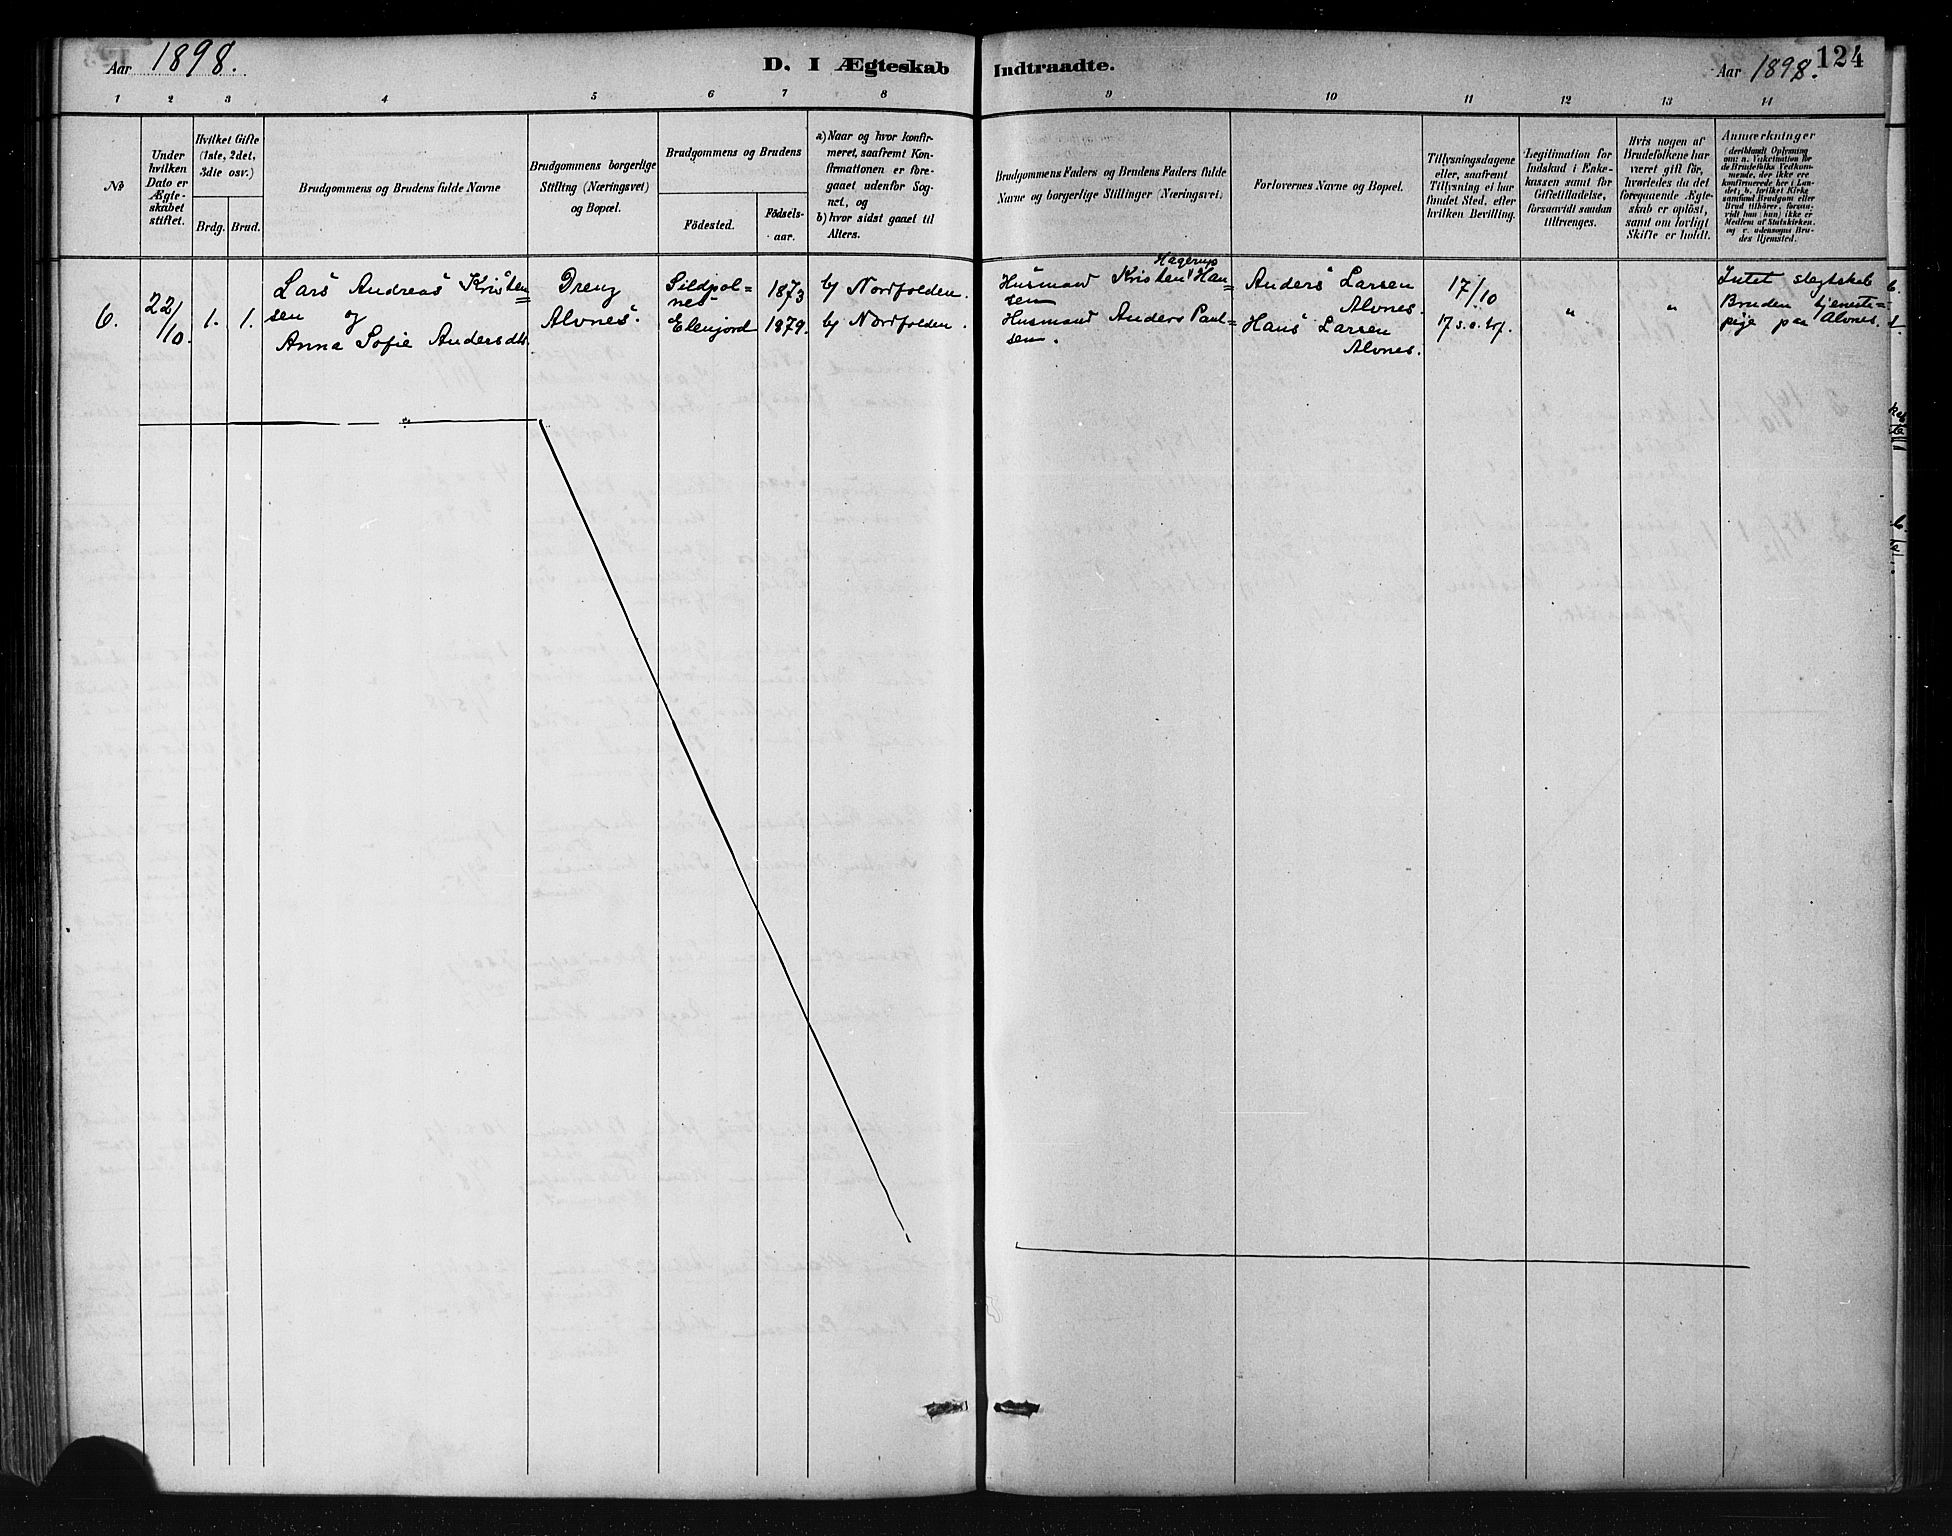 Aar 1898.
D. I Ægteskab Indtraadte.
Aar 1898.
124
1 2 3 4 5 6 7 8 9 10 11 12 13 14
No
Under hvilken Dato er Ægte-skabet stiftet.
Hvilket Gifte (1ste, 2det, 3die osv.)
Brdg. Brud.
Brudgommens og Brudens fulde Navne
Brudgommens borgerlige Stilling (Næringsvei) og Bopæl.
Brudgommens og Brudens
Födested.
Födsels-aar.
a) Naar og hvor konfir-meret, saafremt Kon-firmationen er fore-gaaet udenfor Sog-net, og
b) hvor sidst gaaet til Alters.
Brudgommens Faders og Brudens Faders fulde Navne og borgerlige Stillinger (Næringsvei.)
Forlovernes Navne og Bopæl.
Tillysningsdagene eller, saafremt Tillysning ei har fundet Sted, efter hvilken Bevilling.
Legitimation for Indskud i Enke-kassen samt for Giftetilladelse, forsaavidt saadan tiltrænges.
Hvis nogen af Brudefolkene har været gift för, hvorledes da det foregaaende Ægte-skab er oplöst, samt om lovligt Skifte er holdt.
Anmærkninger (deriblandt Oplysning om: a. Vakcination for de Brudefolks Vedkom-mende, der ikke ere konfirmerede her i Lan-det; b. hvilket Kirke-samfund Brudgom eller Brud tilhörer, forsaa-vidt han (hun) ikke er Medlem af Statskirken, og c. udensogns Bru-des Hjemsted.
6.
22/10.
1. 1.
Lars Andreas Kristen=
sen og
Anna Sofie Andersdtr.
Dreng
Alvnes.
Sildpol=
nes
Elenjord
1873
1879.
b) Nordfolden.
b) Nordfolden.
Hagerup
Husmand Kristen Han=
sen
Husmand Anders Paul=
sen.
Anders Larsen
Alvnes.
Hans Larsen
Alvnes.
17/10
17 s. e. trf.
"
"
Intet slegtskab
Bruden tjeneste=
pige paa Alvnes.